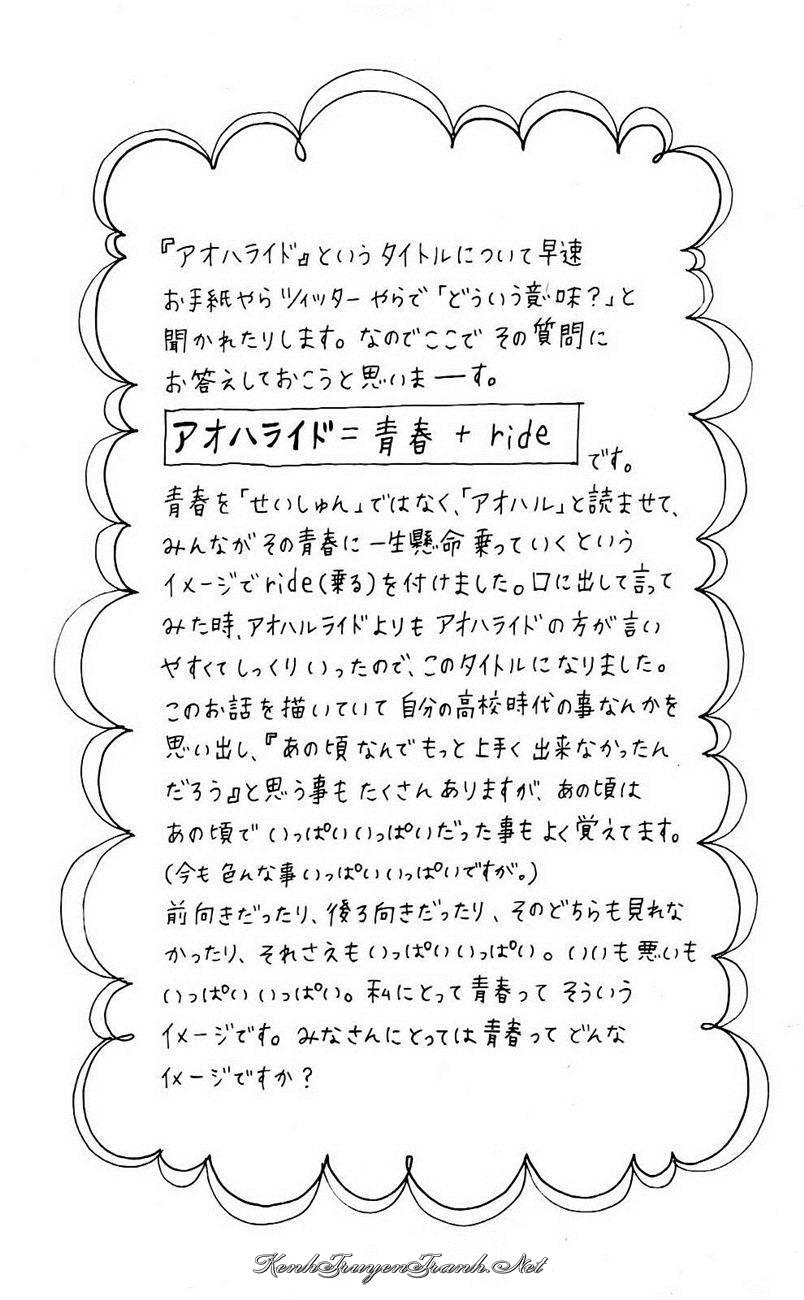 『アオハライド』というタイトルについて早速
お手紙やらツィッターやらで「どういう意味?」と
聞かれたりします。なのでここで その質問に
お答えしておこうと思いまーす。
アオハライド = 青春 + ride
です。
青春を「せいしゅん」ではなく、「アオハル」と読ませて、
みんながその青春に一生懸命 乗っていくという
イメージでride(乗る)を付けました。口に出して言って
みた時、アオハルライドよりも アオハライドの方が言い
やすくてしっくりいったので、このタイトルになりました。
このお話を描いていて 自分の高校時代の事なんかを
思い出し、『あの頃 なんでもっと上手く出来なかったん
だろう』と思う事も たくさんありますが、あの頃は
あの頃で いっぱいいっぱいだった事もよく覚えてます。
(今も色んな事いっぱいいっぱいですが。)
前向きだったり、後ろ向きだったり、そのどちらも見れな
かったり、それさえもいっぱいいっぱい。いいも悪いも
いっぱいいっぱい。私にとって青春って そういう
イメージです。みなさんにとっては青春って どんな
イメージですか?
KenhTruyenTranh.Net